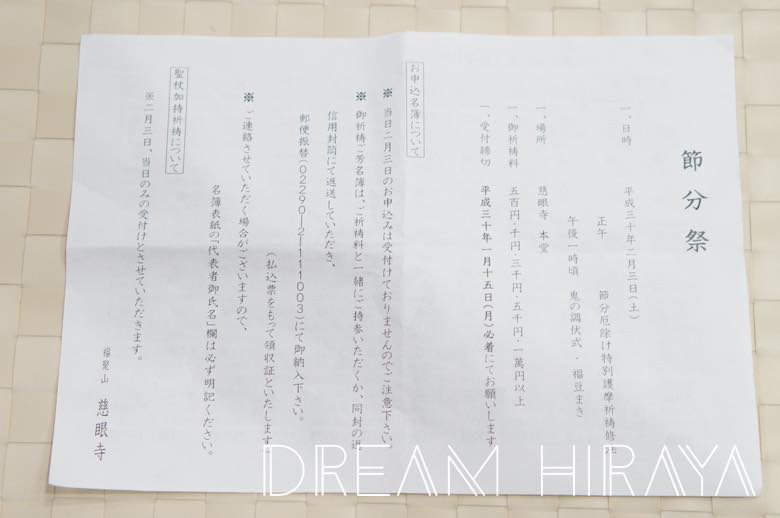 節分祭
一、日時 平成三十年二月三日(土)
正午 節分厄除け特別護摩祈祷修
午後一時頃 鬼の調伏式・福豆まき
一、場所 慈眼寺 本堂
一、御祈祷料 五百円・千円・三千円・五千円・一萬円以上
一、受付締切 平成三十年一月十五日(月)必着にてお願いします
お申込名簿について
※ 当日二月三日のお申込みは受付けておりませんのでご注意下さい。
※ 御祈祷ご芳名簿は、ご祈祷料と一緒にご持参いただくか、同封の返
信用封筒にて返送していただき、
郵便振替(02290―2―111003)にて御納入下さい。
(払込票をもって領収証といたします)
※ ご連絡させていただく場合がございますので、
名簿表紙の「代表者御氏名」欄は必ず明記ください。
聖杖加持祈祷について
※二月三日、当日のみの受付けとさせていただきます。
福聚山 慈眼寺
DREAM HIRAYA